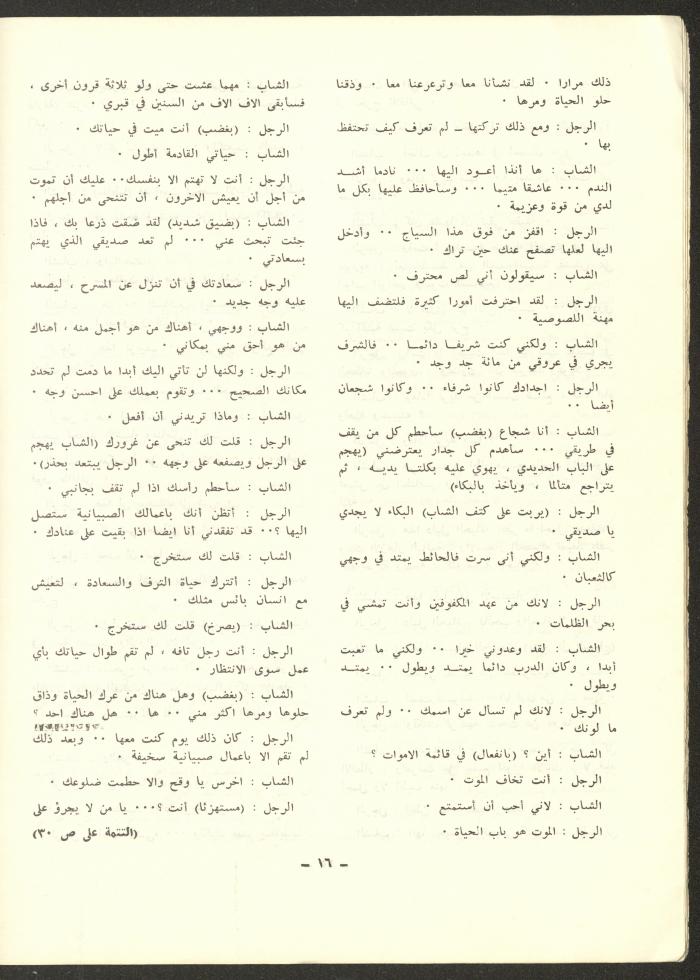 ذلك مرارا ٠ لقد نشأنا معا وترعرعنا معا ٠ وذقنا
حلو الحياة ومرها ٠
الرجل : ومع ذلك تركتها ــ لم تعرف كيف تحتفظ
بها ٠
الشاب : ها أنذا أعـود اليها ٠٠٠ نادما أشـد
الندم ٠٠٠ عاشقا متيما ٠٠٠ وسأحافظ عليها بكل ما
لدي من قوة وعزيمة ٠
الرجل : اقفز من فوق هذا السياج ٠٠ وأدخل
اليها لعلها تصفح عنك حين تراك ٠
الشاب : سيقولون أني لص محترف ٠
الرجل : لقد احترفت أمورا كثيرة فلتضف اليها
مهنة اللصوصية ٠
الشاب : ولكني كنت شريفـا دائمـا ٠٠ فالشرف
يجري في عروقي من مائة جد وجد ٠
الرجل : اجدادك كانوا شرفاء ٠٠ وكانوا شجعان
أيضا ٠٠
الشاب : أنا شجاع (بغضب) سأحطم كل من يقف
في طريقي ٠٠٠ سأهدم كل جدار يعترضني (يهجم
على الباب الحديدي ، يهوي عليه بكلتـا يديـه ، ثم
يتراجع متألما ، ويأخذ بالبكاء)
الرجل : (يربت على كتف الشاب) البكاء لا يجدي
يا صديقي ٠
الشاب : ولكني أنى سرت فالحائط يمتد في وجهي
كالثعبان ٠
الرجل : لانك من عهد المكفوفين وأنت تمشي في
بحر الظلمات ٠
الشاب : لقد وعدوني خيرا ٠٠ ولكني ما تعبت
أبدا ، وكان الدرب دائما يمتـد ويطول ٠٠ يمتـد
ويطول ٠
الرجل : لانك لم تسأل عن اسمك ٠٠ ولم تعرف
ما لونك ٠
الشاب : أين ؟ (بانفعال) في قائمة الاموات ؟
الرجل : أنت تخاف الموت ٠
الشاب : لاني أحب أن أستمتع ٠
الرجل : الموت هو باب الحياة ٠
الشاب : مهما عشت حتى ولو ثلاثة قرون أخرى ،
فسأبقى الاف الاف من السنين في قبري ٠
الرجل : (بغضب) أنت ميت في حياتك ٠
الشاب : حياتي القادمة أطول ٠
الرجل : أنت لا تهتم الا بنفسك٠٠ عليك أن تموت
من أجل أن يعيش الاخرون ، أن تتنحى من أجلهم ٠
الشاب : (بضيق شديد) لقد ضقت ذرعا بك ، فاذا
جئت تبحث عني ٠٠٠ لم تعد صديقي الذي يهتم
بسعادتي ٠
الرجل : سعادتك في أن تنزل عن المسرح ، ليصعد
عليه وجه جديد ٠
الشاب : ووجهي ، أهناك من هو أجمل منه ، أهناك
من هو أحق مني بمكاني ٠
الرجل : ولكنها لن تأتي اليك أبدا ما دمت لم تحدد
مكانك الصحيح ٠٠٠ وتقوم بعملك على احسن وجه ٠
الشاب : وماذا تريدني أن أفعل ٠
الرجل : قلت لك تنحى عن غرورك (الشاب يهجم
على الرجل ويصفعه على وجهه ٠٠ الرجل يبتعد بحذر)٠
الشاب : سأحطم رأسك اذا لم تقف بجانبي ٠
الرجل : أتظن أنك باعمالك الصبيانية ستصل
اليها ؟٠٠ قد تفقدني أنا ايضا اذا بقيت على عنادك ٠
الشاب : قلت لك ستخرج ٠
الرجل : أتترك حياة الترف والسعادة ، لتعيش
مع انسان بائس مثلك ٠
الشاب : (يصرخ) قلت لك ستخرج ٠
الرجل : أنت رجل تافه ، لم تقم طوال حياتك بأي
عمل سوى الانتظار ٠
الشاب : (بغضب) وهل هناك من عرك الحياة وذاق
حلوها ومرها اكثر مني ٠٠ ها ٠٠ هل هناك احد ؟
الرجل : كان ذلك يوم كنت معها ٠٠ وبعد ذلك
لم تقم الا باعمال صبيانية سخيفة ٠
الشاب : اخرس يا وقح والا حطمت ضلوعك ٠
الرجل : (مستهزئا) أنت ؟٠٠٠ يا من لا يجرؤ على
(التتمة على ص ٣٠)
ــ ١٦ ــ